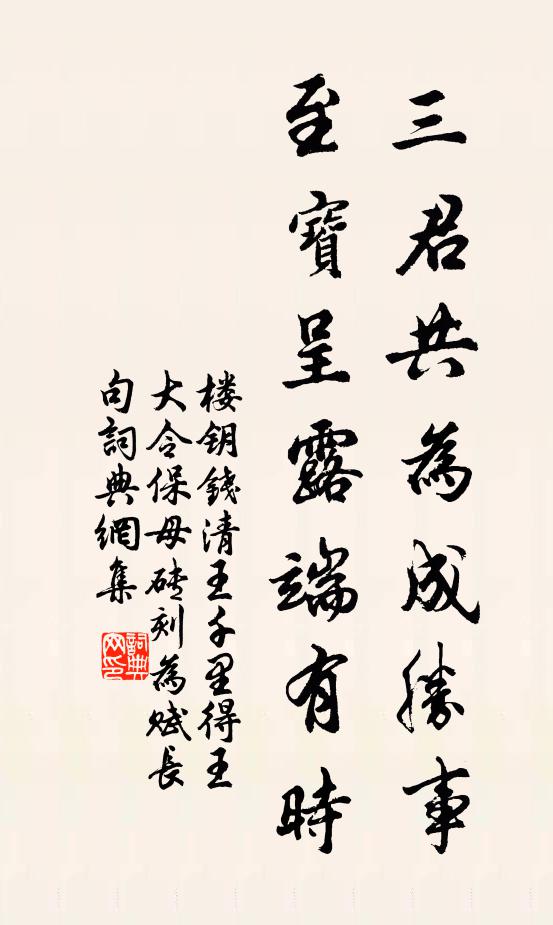 三君共為成勝事
至寶呈露端有時
楼钥錢清王千里得王
大令保母磚刻為赋長
句詞典網集
詞典网印